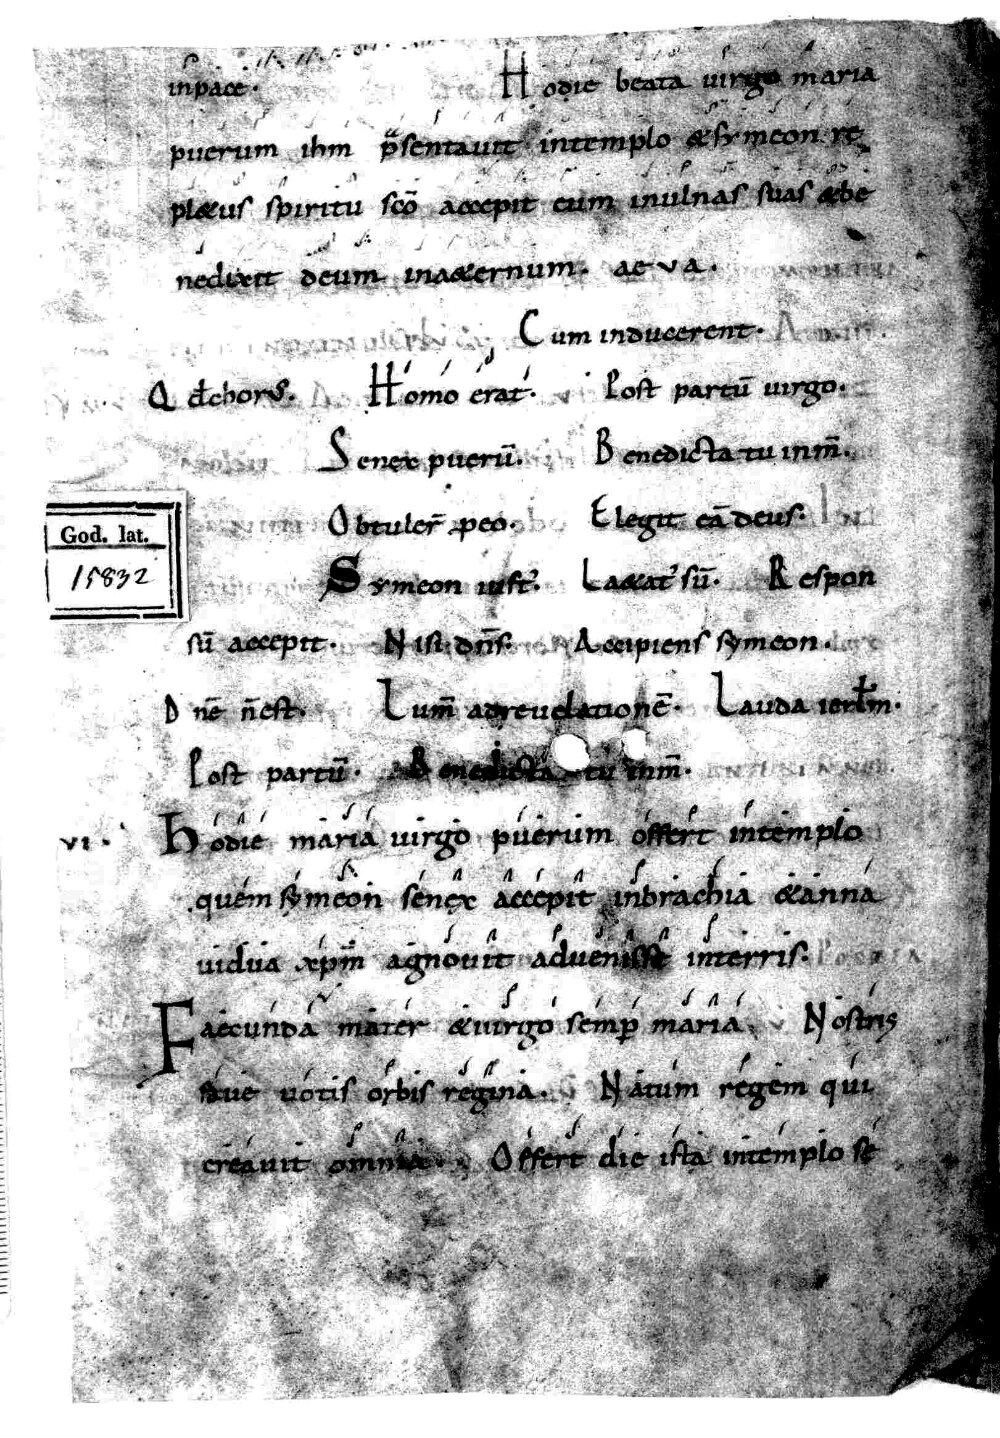 inpace. Hodie beata uirgo maria
puerum ihm p̄sentauit intemplo & symeon re
pl&us spiritu sc̄o accepit eum inulnas suas & be
nedixit deum ina&ernum. aeva.
Cum inducerent.
Q d chorus. Homo erat. Post partū uirgo.
Senex puerū. Benedicta tu inm̄.
Obtuler̄ peo. Elegit eā deus.
Symeon iust'. La&at' sū. Respon
sū accepit. Nisi dn̄s. Accipiens symeon.
Dnē n̄est. Lum̄ adreuelationē. Lauda ierlm̄.
Post partū. Benedicta tu inm̄.
VI. Hodie maria uirgo puerum offert intemplo
quem symeon senex accepit inbrachia & anna
uidua xp̄m aguouit aduenisse interris.
Faecunda mater & uirgo semp̄ maria. Nostris
faue uotis orbis regina. Natum regem qui
creauit omnia. Offert die ista intemplo se
God. lat.
15832